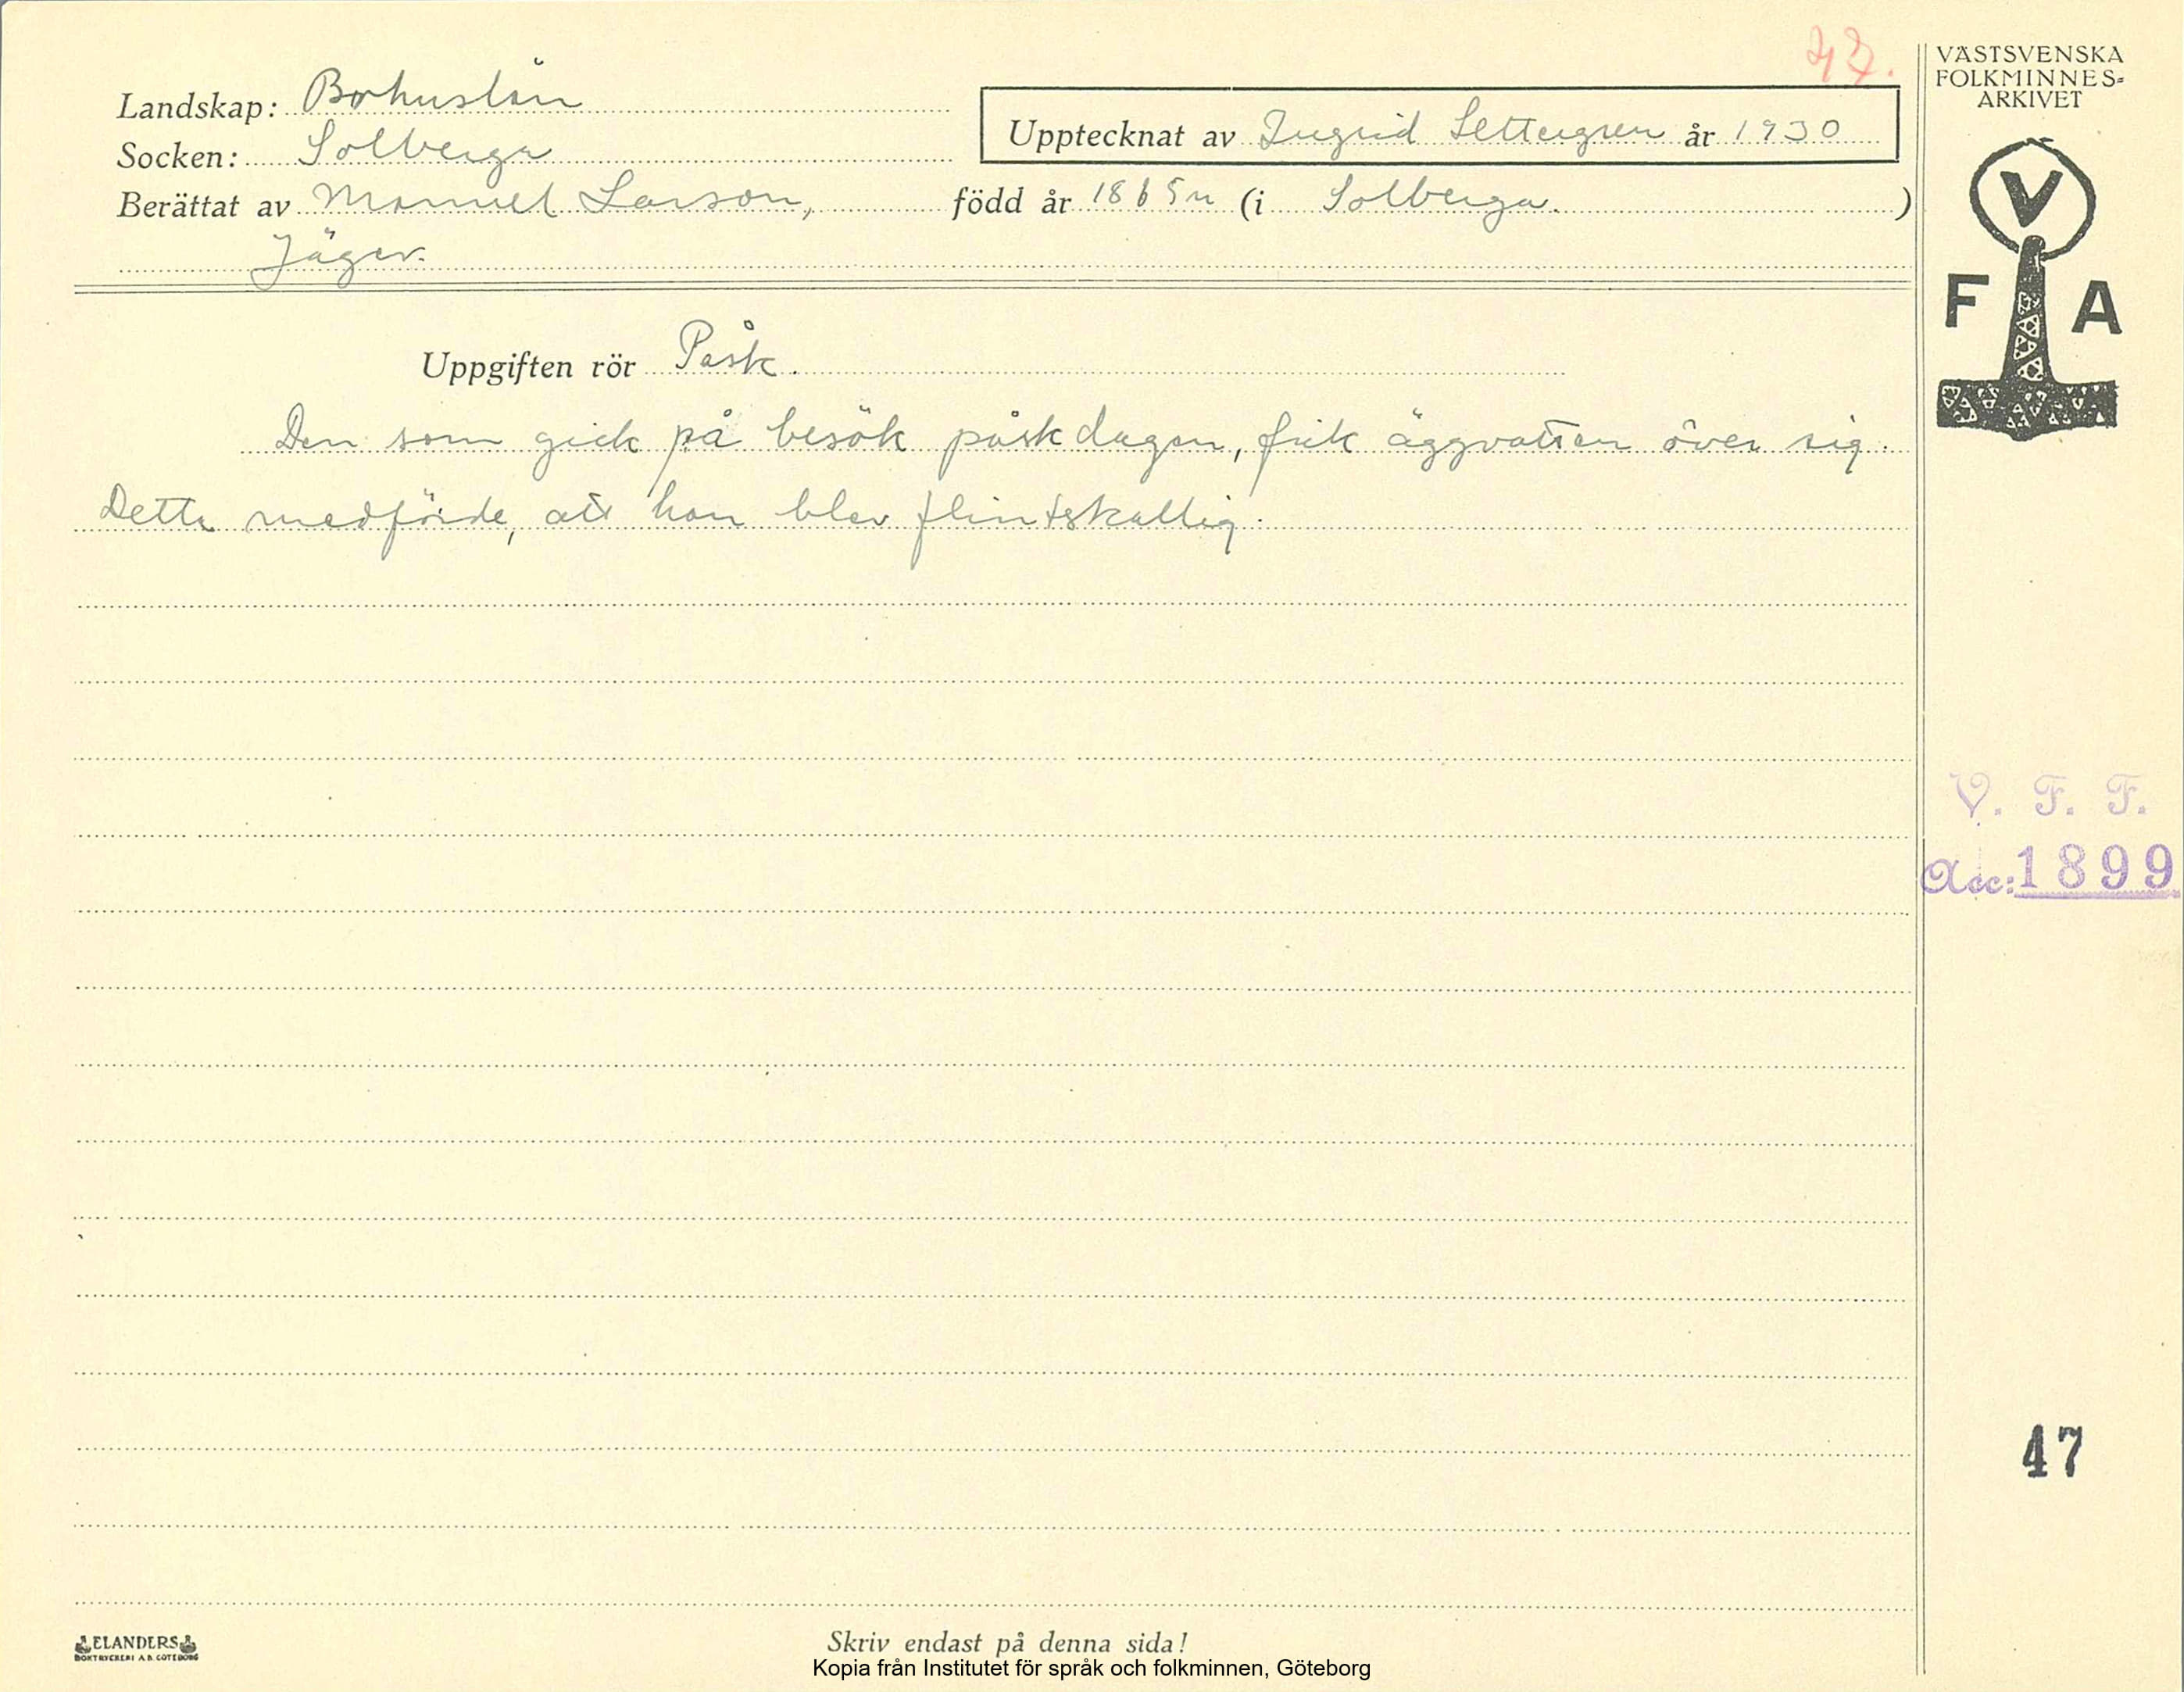 47.
Landskap: Bohuslän
Socken: Solberga
Upptecknat av Ingrid Settergren år 1930
Berättat av Manuel Larson, född år 1865 (i Solberga.)
Jäger.
Uppgiften rör Påsk.
Den som gick på besök påskdagen, fick äggvatten över sig.
Dette medförde, att han blev flintskallig.
VÄSTSVENSKA
FOLKMINNES-
ARKIVET
V
F A
V. F. F.
Acc: 1899
47
ELANDERS
BOKTRYCKERI A.B. GÖTEBORG
Skriv endast på denna sida!
Kopia från Institutet för språk och folkminnen, Göteborg